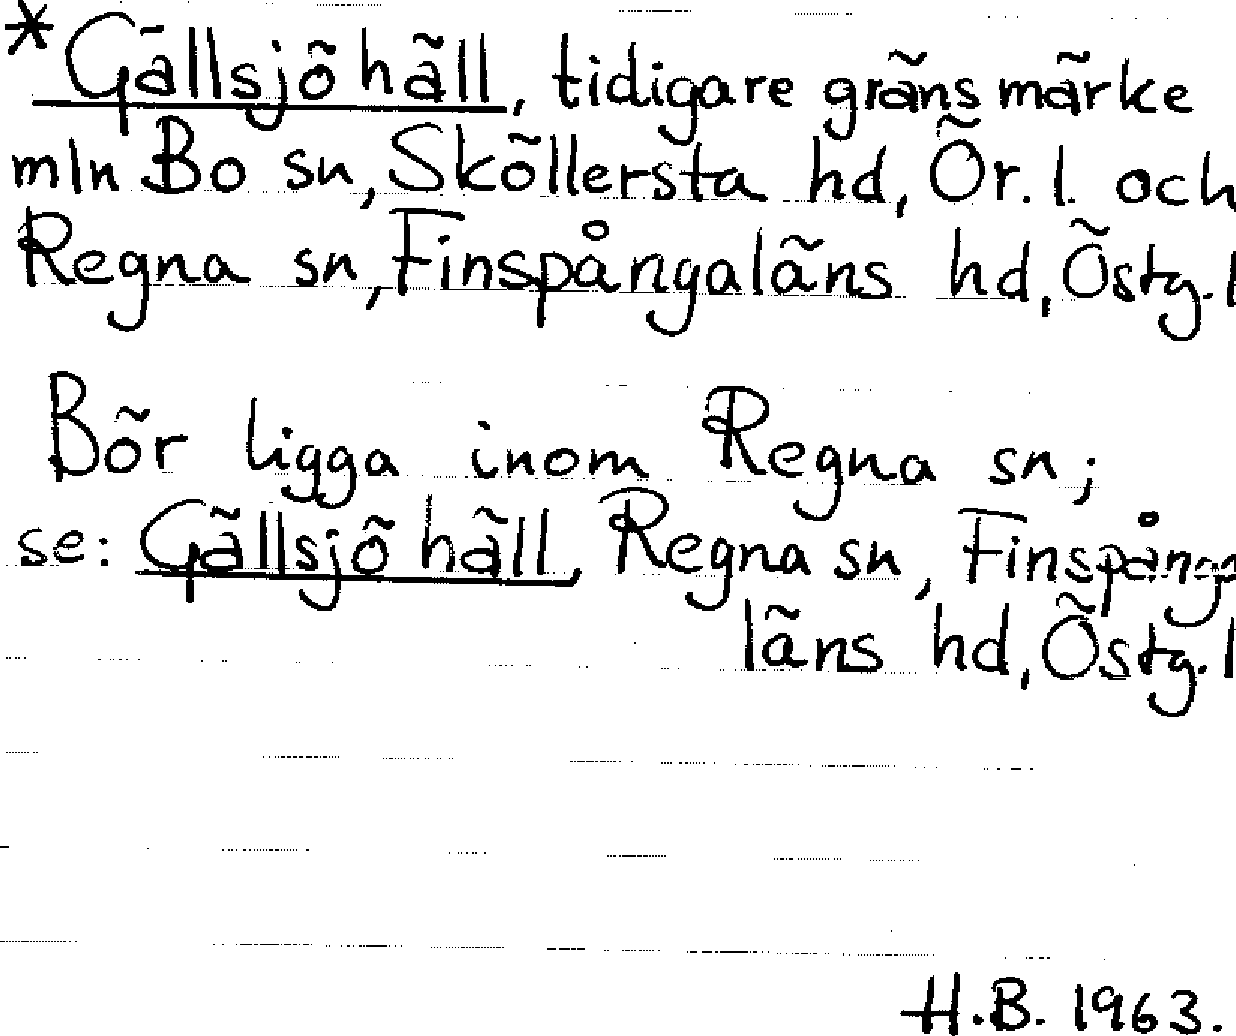 * Gällsjö häll, tidigare gränsmärke
mln Bo sn, Sköllersta hd, Ör. l. och
Regna sn, Finspångaläns hd, Östg. l
Bör ligga inom Regna sn;
se: Gällsjö häll, Regna sn, Finspånga
läns hd, Östg. l
H.B. 1963.